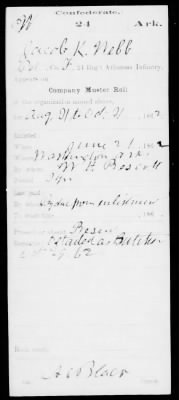 Confederate.
W 24 Ark.
Jacob K. Webb
Co. F, 24 Reg't Arkansas Infantry.
Appears on
Company Muster Roll
of the organization named above,
for Aug 31 to Oct 31, 1862.
Enlisted:
When June 21, 1862
Where Washington Ark
By whom W. H. Prescott
Period 3 yrs
Last paid:
By whom
To what time , 186
Present
Remarks: Detailed as Butcher
62
Book mark: